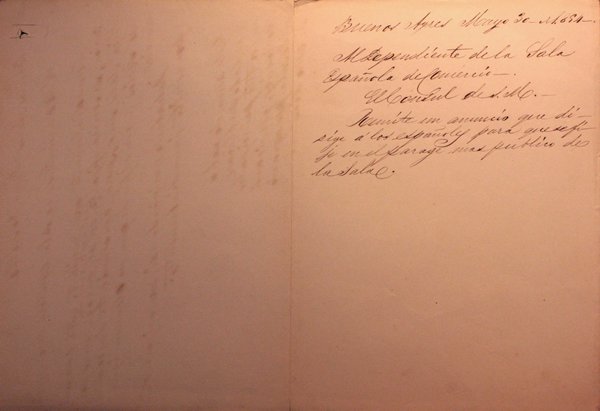 Buenos Ayres Mayo 30 de 1854.
Al Dependiente de la Sala
Española de Comercio.
El Consul de S. M.
Remite un anuncio que di-
rige a los españoles para que se fi-
je en el parage mas publico de
la Sala.